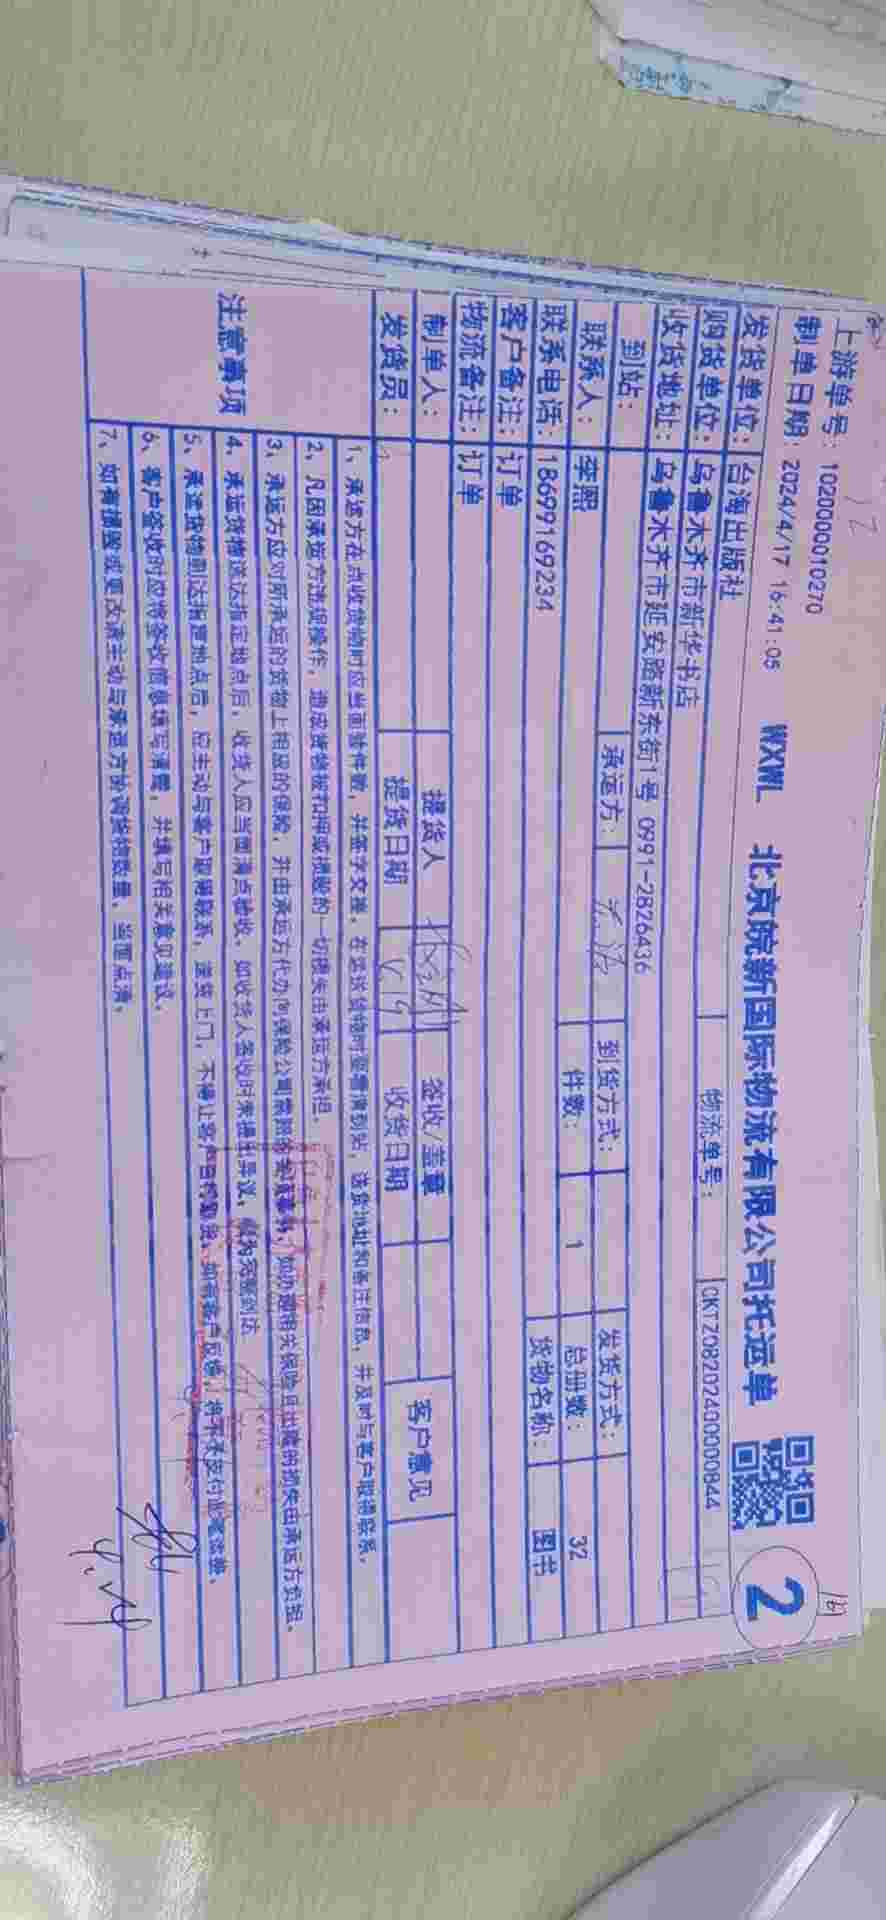 上游单号：102000010270
制单日期：2024/4/17 16:41:05 WXWL 北京皖新国际物流有限公司托运单 2
发货单位：台海出版社 物流单号：CKTZ0820240000844
购货单位：乌鲁木齐市新华书店
收货地址：乌鲁木齐市延安路新东街1号 0991-2826436
到站： 承运方： 到货方式： 发货方式：
联系人：李熙 件数：1 总册数：32
联系电话：18699169234 货物名称：图书
客户备注：订单
物流备注：订单
制单人： 提货人 签收/盖章 客户意见
发货员： 提货日期 收货日期
注意事项
1、承运方在点收货物时应当面验件数，并签字交接，在货物时要看清到站，送货地址和备注信息，并及时与客户取得联系。
2、凡因承运方违规操作，造成货物被扣押或损毁的一切损失由承运方承担。
3、承运方应对所承运的货物上相应的保险，并由承运方代办向保险公司索赔的如办理相关保险且出险的损失由承运方负担。
4、承运货物送达指定地点后，收货人应当面清点验收，如收货人签收时未提出异议，视为完整到达
5、承运货物到达指定地点后，应主动与客户取得联系，送货上门，不得让客户自行取货，如有客户反馈，将不予支付此笔运费。
6、客户签收时应将签收信息填写清楚，并填写相关意见建议。
7、如有损毁或更改请主动与承运方协调货物数量，当面点清。